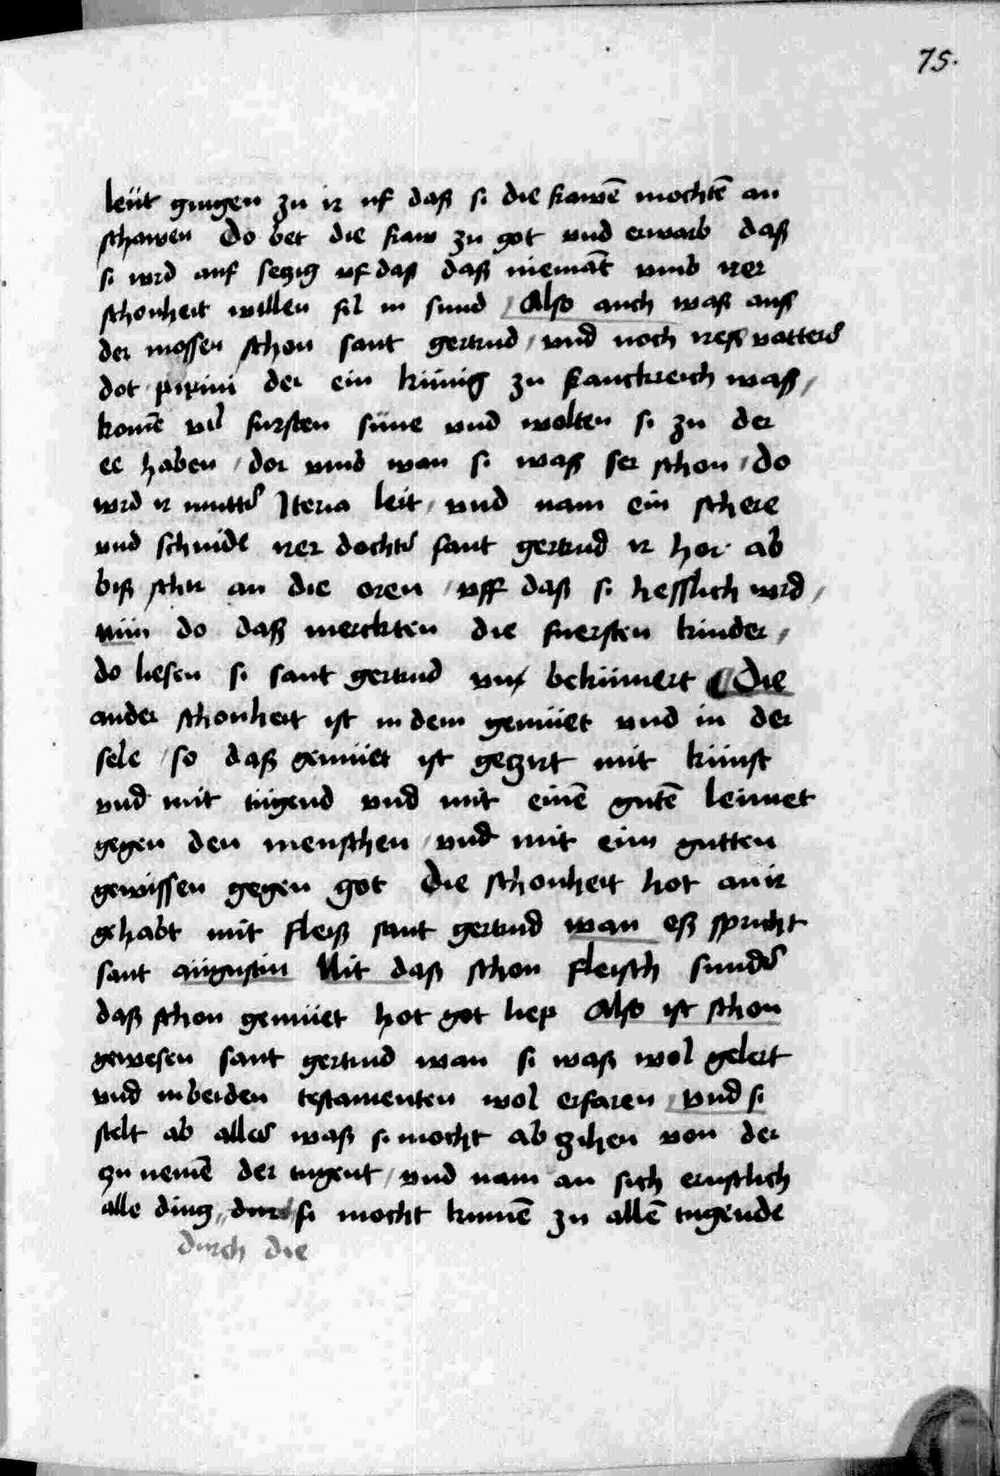 75.
leüt gingen zu ir uf daß si die frawē mochtē an
schawen Do bet die fraw zu got vnd erwarb daß
si wrd auf setzig vf daß daß niemāt vmb irer
schonheit willen fil in sund / Also auch waß auß
der mossen schon sant gertrud / vnd noch ireß vatters
dot pipini der ein künig zu franckreich waß /
komē vil fursten süne vnd wolten si zu der
ee haben / dor vmb wan si waß ser schon / do
wrd ir mutter Iteria leit / vnd nam ein schere
vnd schnidt irer dochter sant gertrud ir hor ab
biß schir an die oren / vff daß si hesslich wrd /
nün do daß merckten die fuersten kinder /
do liesen si sant gertrud vn bekümert Die
ander schonheit ist in dem gemüet vnd in der
sele / so daß gemüet ist gezirt mit künst
vnd mit tügend vnd mit einē gutē leümet
gegen den menschen / vnd mit eim gutten
gewissen gegen got Die schonheit hot an ir
gehabt mit fleiß sant gertrud wan eß spricht
sant augustin Nit daß schon fleisch sunder
daß schon gemüet hot got liep Also ist schon
gewesen sant gertrud wan si waß wol gelert
vnd in beiden testamenten wol erfaren / vnd si
stelt ab alles waß si mocht ab zihen von der
zu nemē der tugent / vnd nam an sich ernstlich
alle ding, si mocht kumē zu allē tugende
durch die